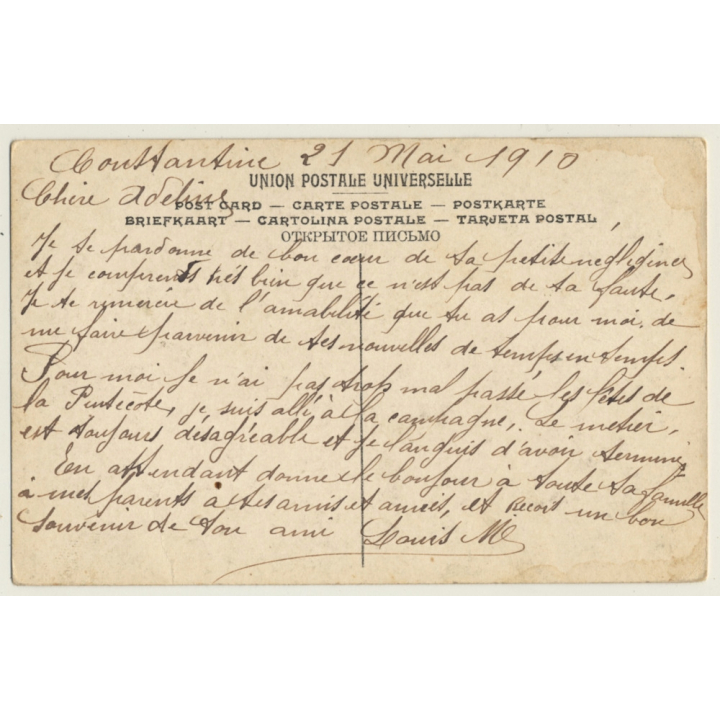 Constantine 21 Mai 1910
UNION POSTALE UNIVERSELLE
Chère Adeline
POST CARD — CARTE POSTALE — POSTKARTE
BRIEFKAART — CARTOLINA POSTALE — TARJETA POSTAL
ОТКРЫТОЕ ПИСЬМО
Je te pardonne de bon cœur de ta petite négligence
et je comprends très bien que ce n'est pas de ta faute.
Je te remercie de l'amabilité que tu as pour moi, de
me faire parvenir de tes nouvelles de temps en temps.
Pour moi je n'ai pas trop mal passé les fêtes de
la Pentecôte, je suis allé à la campagne. Le métier,
est toujours désagréable et je languis d'avoir terminé.
En attendant donne le bonjour à toute ta famille
à mes parents à tes amis et amies, et reçois un bon
souvenir de ton ami Louis M